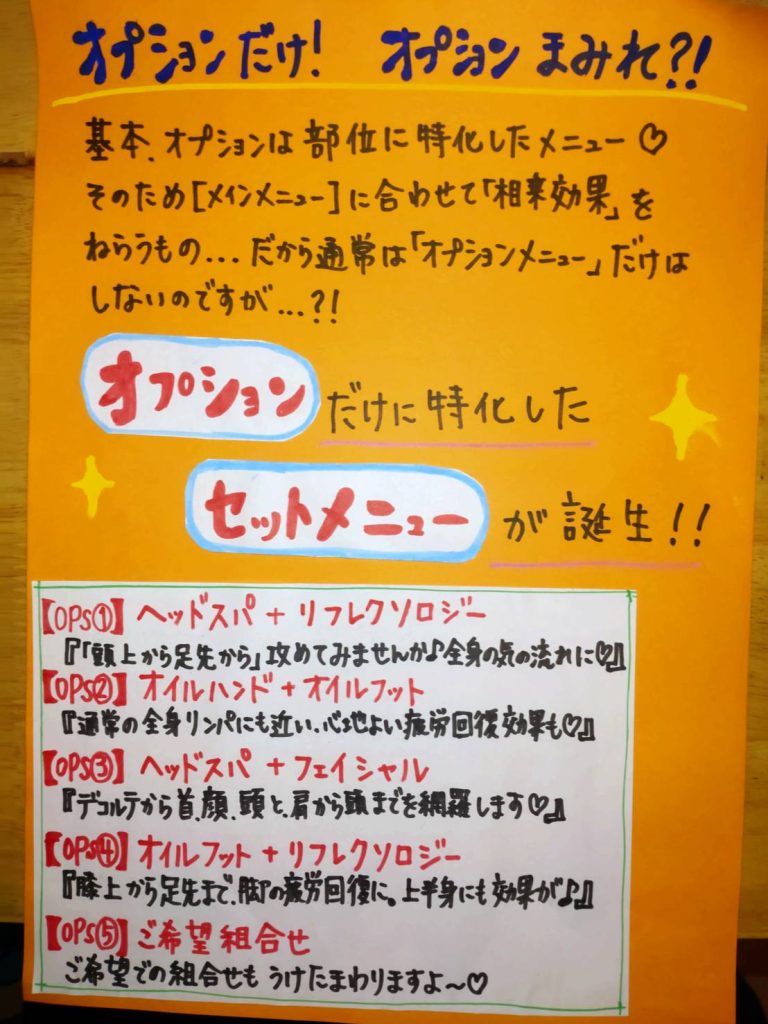 オプションだけ! オプションまみれ?!
基本、オプションは部位に特化したメニュー♡
そのため[メインメニュー]に合わせて「相乗効果」を
ねらうもの...だから通常は「オプションメニュー」だけは
しないのですが...?!
オプションだけに特化した
セットメニューが誕生!!
【OPS①】ヘッドスパ+リフレクソロジー
『「頭上から足先から」攻めてみませんか♪全身の気の流れに♡』
【OPS②】オイルハンド+オイルフット
『通常の全身リンパにも近い、心地よい疲労回復効果も♡』
【OPS③】ヘッドスパ+フェイシャル
『デコルテから首、顔、頭と、肩から頭までを網羅します♡』
【OPS④】オイルフット+リフレクソロジー
『膝上から足先まで、脚の疲労回復に。上半身にも効果が♪』
【OPS⑤】ご希望組合せ
ご希望での組合せもうけたまわりますよ~♡